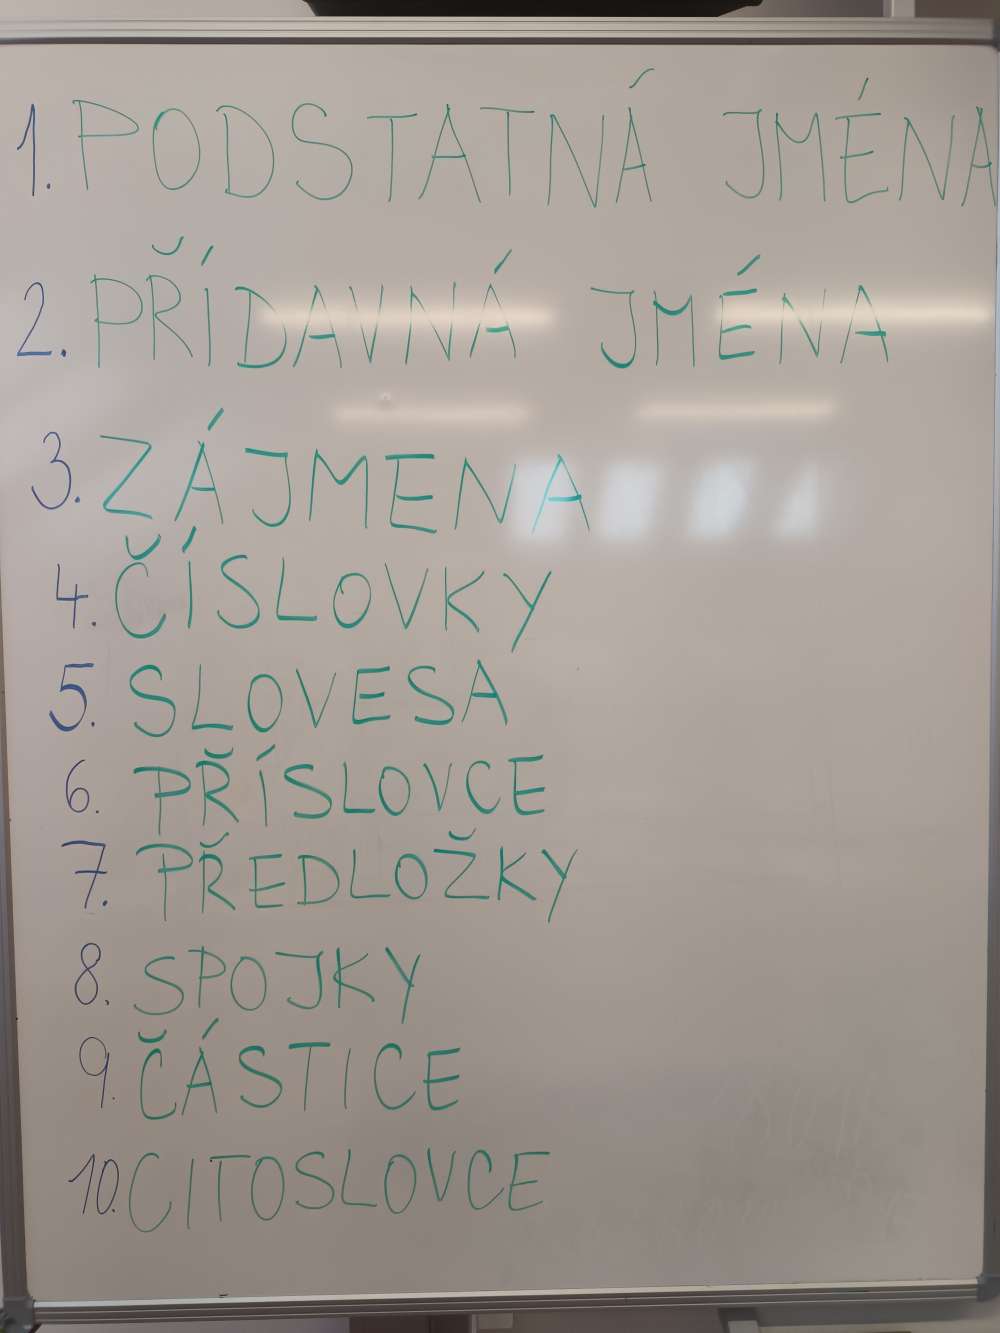 1. PODSTATNÁ JMÉNA
2. PŘÍDAVNÁ JMÉNA
3. ZÁJMENA
4. ČÍSLOVKY
5. SLOVESA
6. PŘÍSLOVCE
7. PŘEDLOŽKY
8. SPOJKY
9. ČÁSTICE
10. CITOSLOVCE